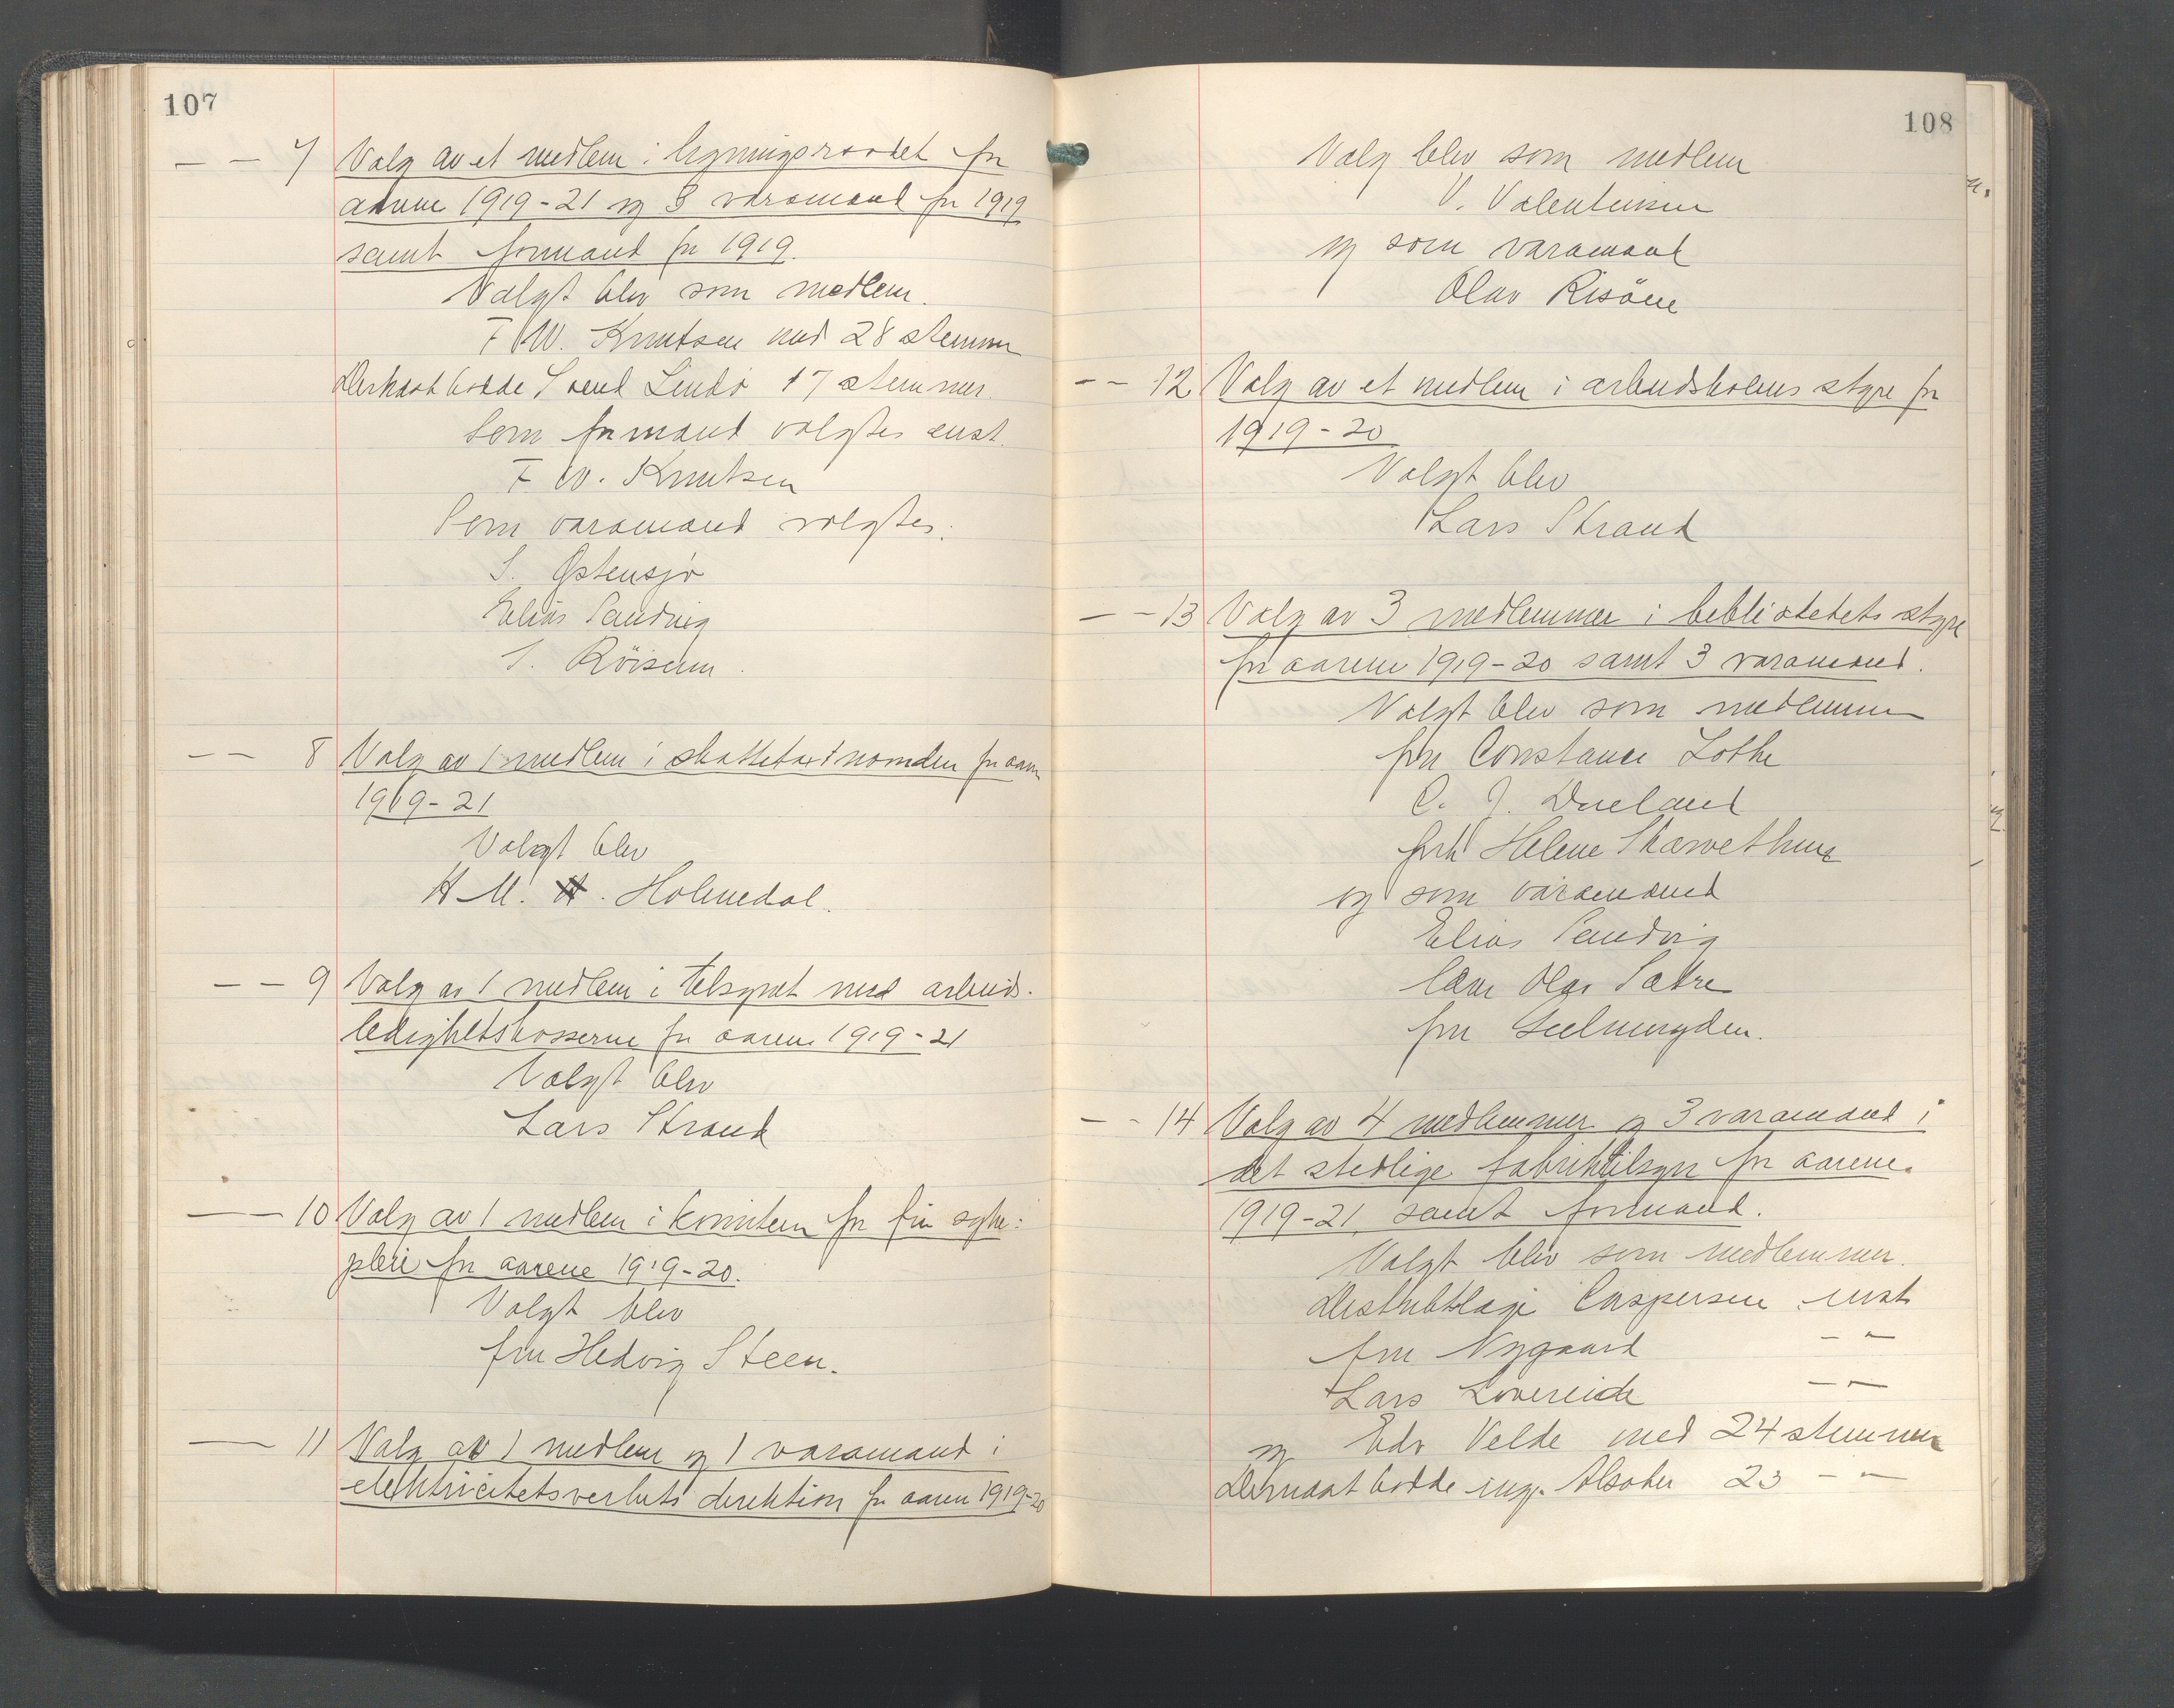 107
— — 7 Valg av et medlem i ligningsraadet for
aarene 1919-21 og 3 varamænd for 1919
samt formand for 1919.
Valgt blev som medlem.
F. W. Knutsen med 28 stemmer
Dernæst hadde Svend Lindø 17 stemmer.
Som formand valgtes enst.
F. W. Knutsen
Som varamænd valgtes:
S. Østensjø
Elias Sandvig
S. Röisum.
— — 8 Valg av 1 medlem i skattetakstnemden for aarene
1919-21
Valgt blev
H M. Holmedal.
— — 9 Valg av 1 medlem i tilsynet med arbeids-
ledighetskasserne for aarene 1919-21
Valgt blev
Lars Strand
— — 10 Valg av 1 medlem i komiteen for fri syke-
pleie for aarene 1919-20.
Valgt blev
fru Hedvig Steen.
— 11 Valg av 1 medlem og 1 varamand i
elektricitetsverkets direktion for aarene 1919-20
108
Valg blev som medlem
V. Valentinsen
og som varamand
Olav Risöen
— — 12 Valg av et medlem i arbeidskolens styre for
1919-20
Valgt blev
Lars Strand
— — 13 Valg av 3 medlemmer i bibliotekets styre
for aarene 1919-20 samt 3 varamænd.
Valgt blev som medlemmer
fru Constance Lothe
C. J. Dueland
frk Helene
og som varamænd
Elias Sandvig
lærer Olav Sætre
fru
— - 14 Valg av 4 medlemmer og 3 varamænd i
det stedlige fabriktilsyn for aarene
1919-21, samt formand.
Valgt blev som medlemmer.
Distriktslæge Caspersen enst.
fru Nygaard — " —
Lars Lovereide — " —
og Edv Velde med 24 stemmer
Dernæst hadde ing. Alsaker 23 — " —